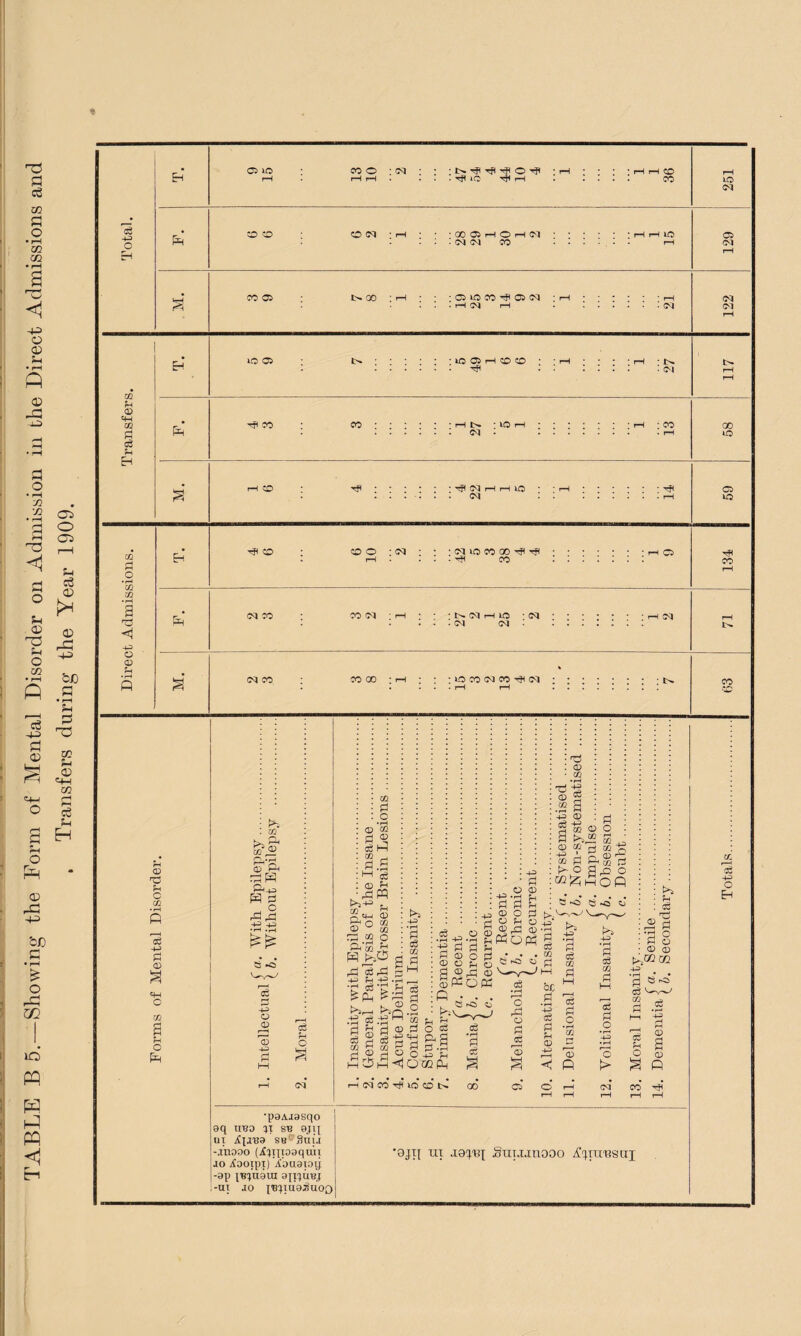 TABLE B 5.—Showing the Form of Mental Disorder on Admission in the Direct Admissions and
Transfers during the Year 1909.
Forms of Mental Disorder. Direct Admissions. Transfers. Total.
M. F. T. M. F. T. M. F. T.
Congenital or infantile mental deficiency (Idiocy or Imbecility) occurring as early in life as it can be observed.
1. Intellectual { a. With Epilepsy 2 2 4 1 4 5 3 6 9
b. Without Epilepsy 3 3 6 6 3 9 9 6 15
2. Moral
Insanity occurring later in life.
1. Insanity with Epilepsy 3 3 6 4 3 7 7 6 13
2. General Paralysis of the Insane 8 2 10 8 2 10
3. Insanity with Grosser Brain Lesions
4. Acute Delirium 1 1 2 1 1 2
5. Confusional Insanity
6. Stupor
7. Primary Dementia
8. Mania { a. Recent 15 27 42 4 1 5 19 28 47
b. Chronic 3 2 5 22 27 49 25 29 54
c. Recurrent 2 1 3 1 1 3 1 4
9. Melancholia { a. Recent 13 25 38 1 5 6 14 30 44
b. Chronic 4 4 5 1 6 9 1 10
c. Recurrent 2 2 4 2 2 4
10. Alternating Insanity
11. Delusional Insanity { a. Systematised 1 1 1 1
b. Non-systematised
12. Volitional Insanity { a. Impulse
b. Obsession
c. Doubt
13. Moral Insanity 1 1 1 1
14. Dementia { a. Senile 1 1 1 1
b. Secondary 7 2 9 14 13 27 21 15 36
Totals 63 71 134 59 58 117 122 129 251